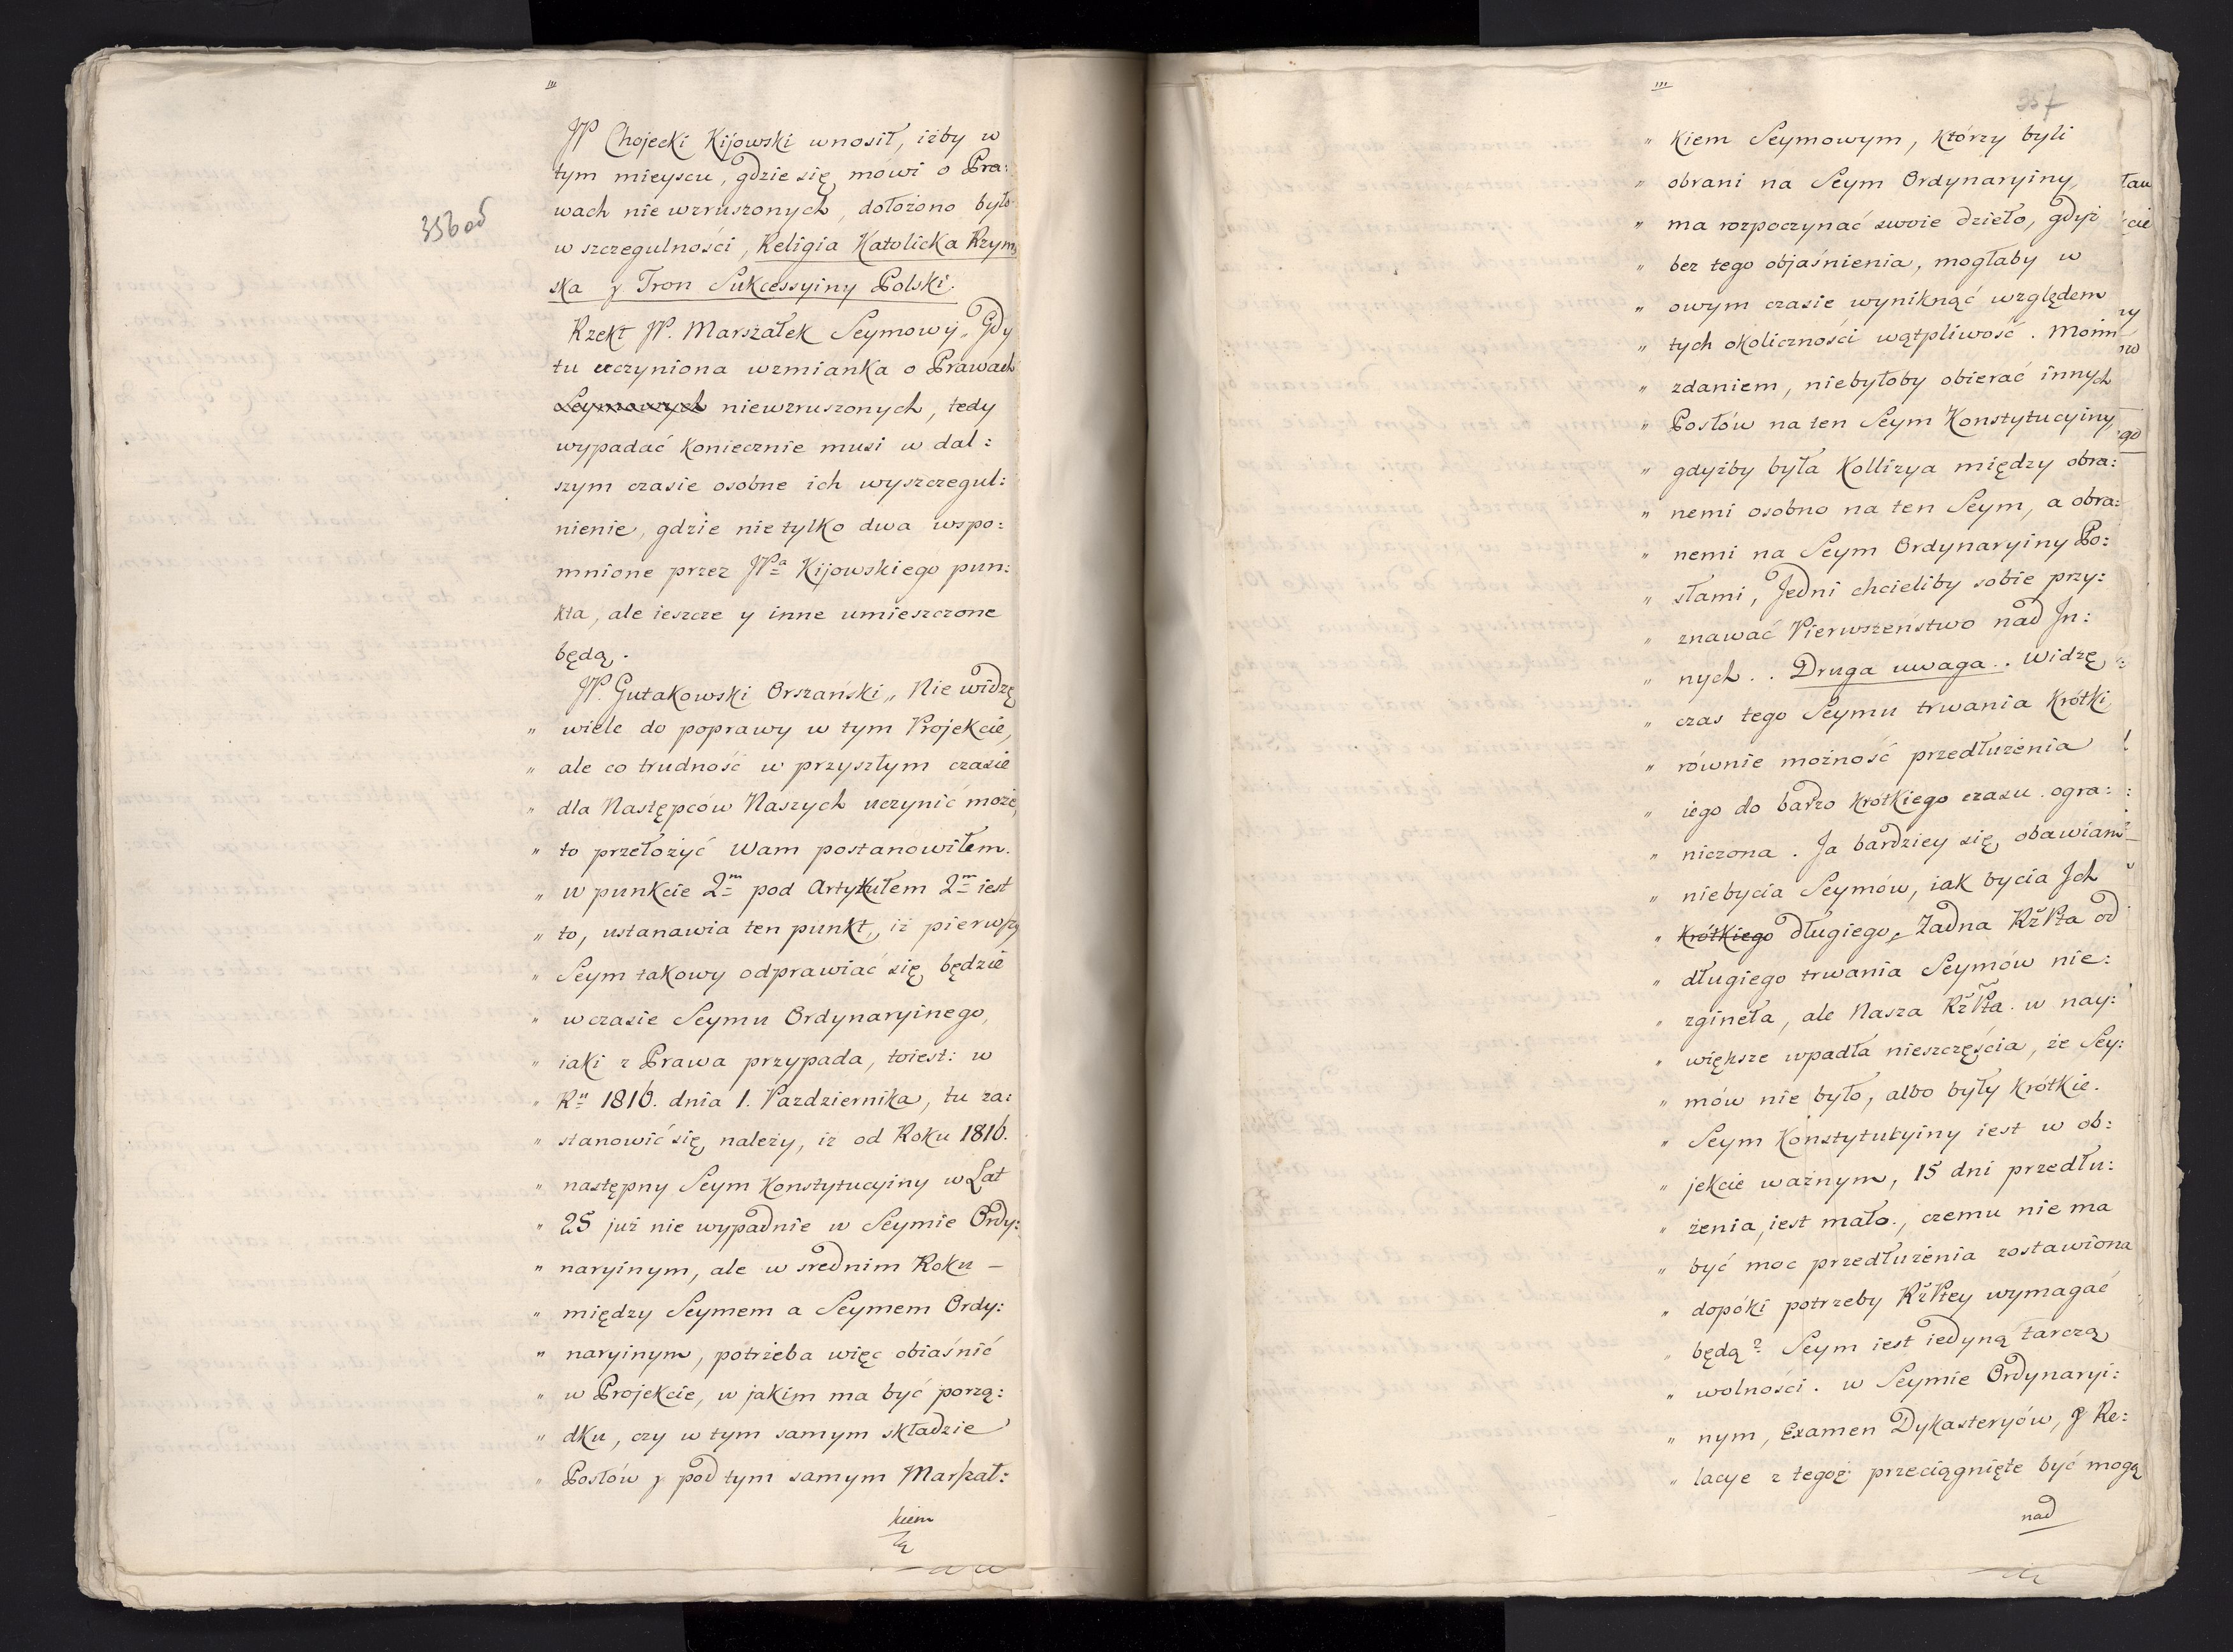 JP Chojecki Kijowski wnosił, iżby w
tym mieyscu, gdzie się mówi o Pra:
wach nie wzruszonych, dołożono było
w szczegulności, Religia Katolicka Rzym
ska y Tron Sukcessyiny Polski.
356 об
Rzekł JP. Marszałek Seymowy „ Gdy
tu uczyniona wzmianka o Prawach
Seymowych niewzruszonych, tedy
wypadać koniecznie musi w dal:
szym czasie osobne ich wyszczegul:
nienie, gdzie nie tylko dwa wspo:
mnione przez JPa Kijowskiego pun:
kta, ale ieszcze y inne umieszczone
będą.
JP. Gutakowski Orszański „ Nie widzę
„ wiele do poprawy w tym Projekcie,
„ ale co trudność w przyszłym czasie
„ dla Następców Naszych uczynić może,
„ to przełożyć Wam postanowiłem.
„ w punkcie 2m pod Artykułem 2m iest
„ to, ustanawia ten punkt, iż pierwszy
„ Seym takowy odprawiać się będzie
„ w czasie Seymu Ordynaryinego,
„ iaki z Prawa przypada, toiest: w
„ Ru 1816. dnia 1. Pazdziernika, tu za:
„ stanowić się należy, iż od Roku 1816.
„ następny Seym Konstytucyiny w Lat
„ 25 już nie wypadnie w Seymie Ordy:
„ naryinym, ale w srednim Roku –
„ między Seymem a Seymem Ordy:
„ naryinym, potrzeba więc obiaśnić
„ w Projekcie, w jakim ma być porzą:
„ dku, czy w tym samym składzie
„ Posłów y pod tym samym Marszał:
kiem
357
„ kiem Seymowym, którzy byli
„ obrani na Seym Ordynaryiny,
„ ma rozpoczynać swoie dzieło, gdyż
„ bez tego objaśnienia, mogłaby w
„ owym czasie wyniknąć względem
„ tych okoliczności wątpliwość. Moim
„ zdaniem, niebyłoby obierać innych
„ Posłów na ten Seym Konstytucyiny,
„ gdyżby była Kollizya między obra:
„ nemi osobno na ten Seym, a obra:
„ nemi na Seym Ordynaryiny Po:
„ słami, Jedni chcieliby sobie przy:
„ znawać Pierwszeństwo nad In:
„ nych.. Druga uwaga.. Widzę
„ czas tego Seymu trwania krótki,
„ równie możność przedłużenia
„ iego do bardzo krótkiego czasu ogra:
„ niczona. Ja bardziey się obawiam
„ niebycia Seymów, iak bycia Ich
„ krótkiego długiego, Zadna RzPta od
„ długiego trwania Seymów nie:
„ zgineła, ale Nasza RzPta. w nay:
„ większe wpadła nieszczęścia, że Sey:
„ mów nie było, albo były krótkie.
„ Seym Konstytucyiny iest w ob:
„ jekcie ważnym, 15 dni przedłu:
„ żenia, iest mało., czemu nie ma
„ być moc przedłużenia zostawiona
„ dopóki potrzeby RzPtey wymagać
„ będą? Seym iest iedyną tarczą
„ wolności. w Seymie Ordynaryi:
„ nym, Examen Dykasteryów, y Re:
„ lacye z tegoż przeciągnięte być mogą
nad